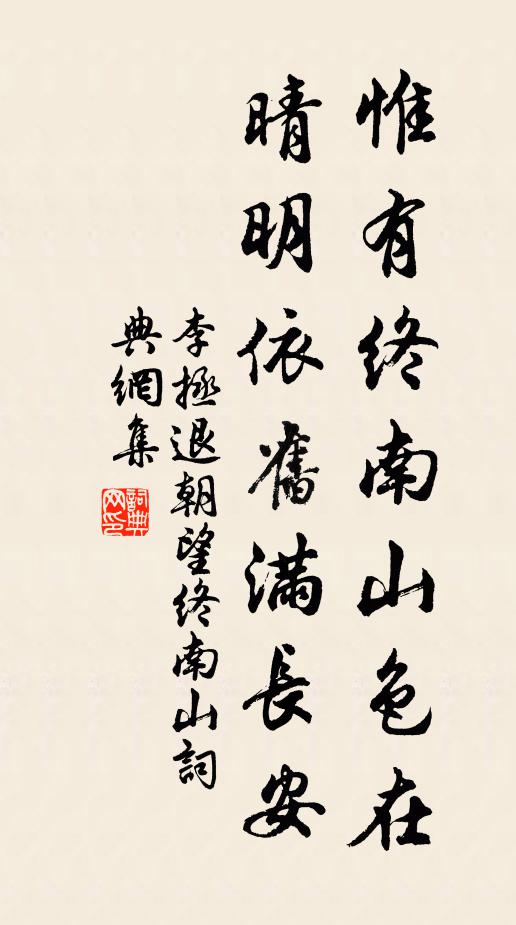 惟有終南山色在
晴明依舊滿長安
李拯退朝望終南山詞
典網集
詞典網印